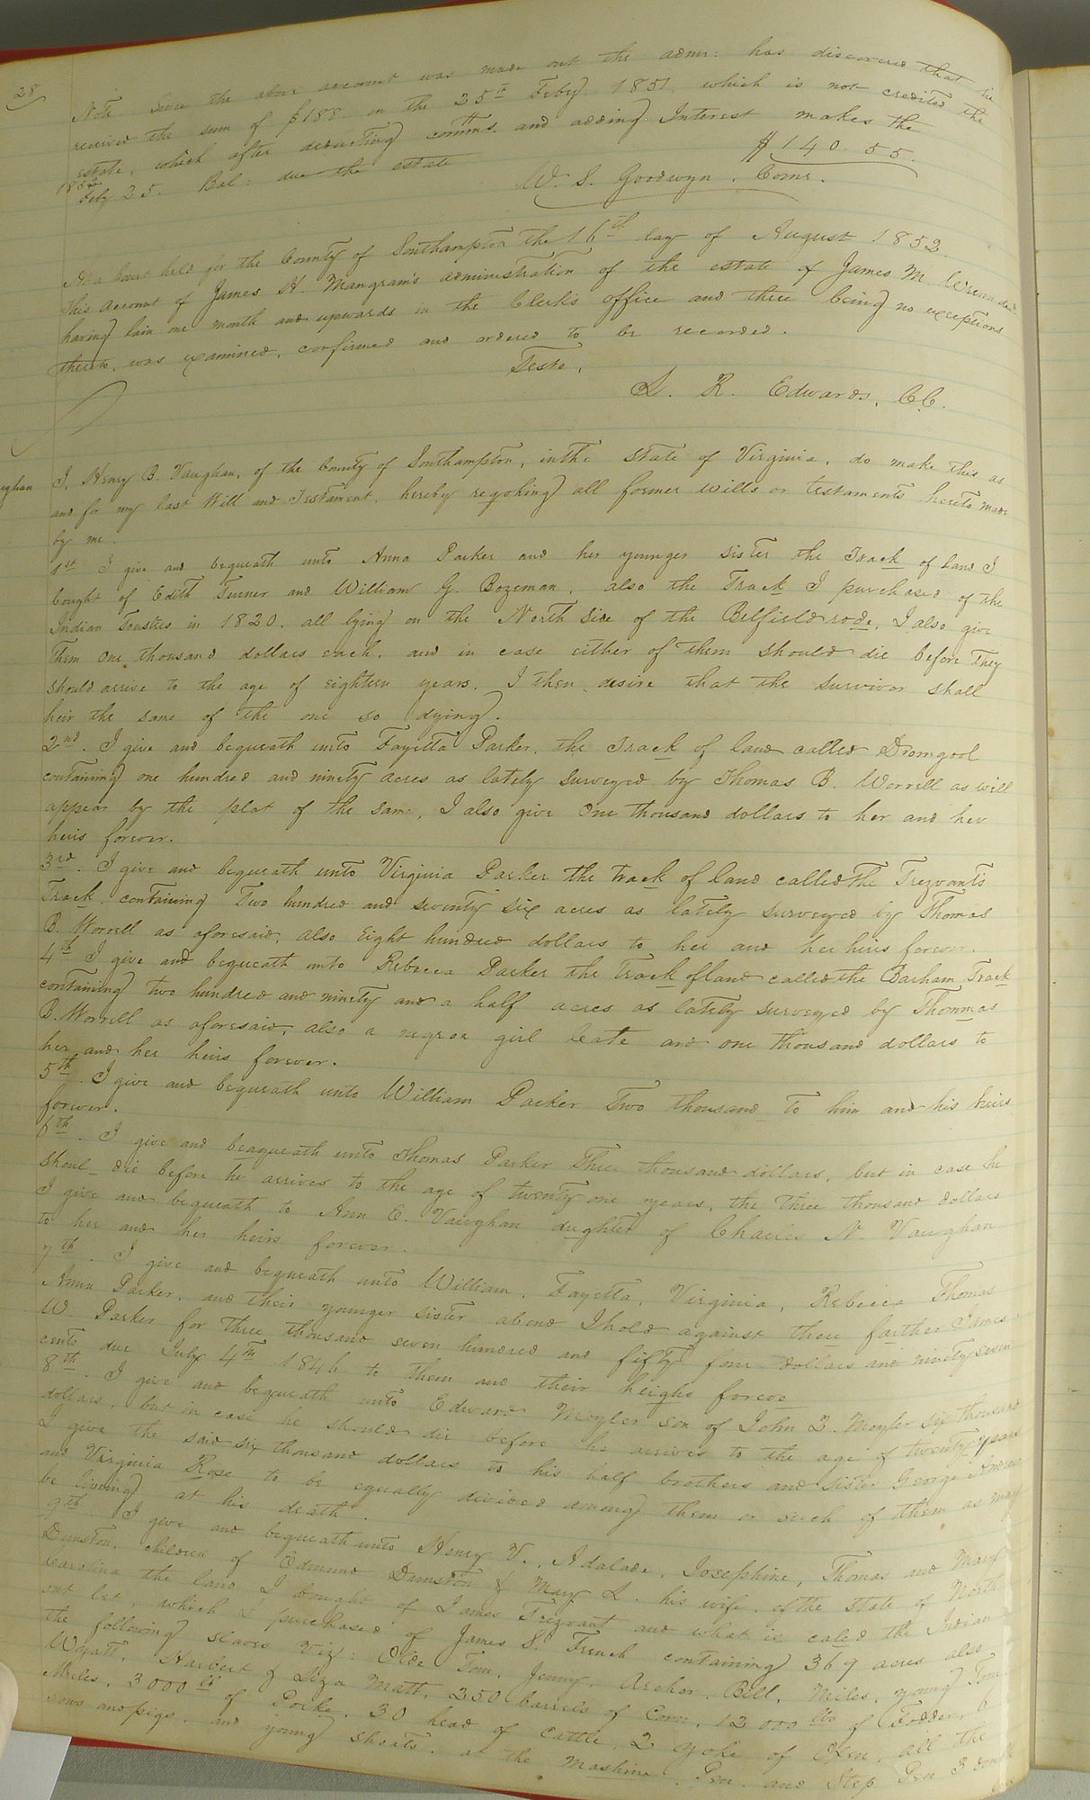 28
Note Since the above account was made out the admr: has discovered that he
received the sum of $188 on the 25th Feby 1851 which is not credited the
estate, which after deducting comms. and adding Interest makes the
1852
Feby 25. Bal: due the estate $140.55.
W. S. Goodwyn. Comr.
At a Court held for the County of Southampton the 16th day of August 1852
This account of James H. Mangram's administration of the estate of James M. decd
having lain one month and upwards in the Clerk's office and there being no exceptions
thereto, was examined, confirmed and ordered to be recorded.
Teste,
L. R. Edwards, C.C.
ughan
I, Henry B. Vaughan, of the County of Southampton, in the State of Virginia, do make this as
and for my last Will and Testament, hereby regoking all former wills or testaments hereto made
by me.
1st I give and bequeath unto Anna Parker and her younger sister the Track of land I
bought of Edith Turner and William G. Bozeman, also the Track I purchased of the
Indian Toustes in 1820. all lying on the North Side of the Belfield rode, I also give
Them One thousand dollars each. and in case either of them should die before They
should arrive to the age of eighteen years, I then desire that the survivor shall
heir the same of the one so dying.
2nd. I give and bequeath unto Fayetta Parker, the Track of land called Dromgool
containing one hundred and ninety acres as lately surveyed by Thomas B. Worrell as will
appear by the plat of the same, I also give One thousand dollars to her and her
heirs forever.
3rd. I give and bequeath unto Virginia Parker the track of land called the Trezvants
Track, containing Two hundred and seventy six acres as lately surveyed by Thomas
B. Worrell as aforesaid, also Eight hundred dollars to her and her heirs forever.
4th I give and bequeath unto Rebecca Parker the Track of land called the Barham Track
containing two hundred and ninety and a half acres as lately surveyed by Thommas
B. Worrell as aforesaid, also a negroe girl Cate and one thousand dollars to
her and her heirs forever.
5th. I give and bequeath unto William Parker Two thousand To him and his heirs
forever.
6th. I give and beaqueath unto Thomas Parker Three thousand dollars, but in case he
shoul_ die before he arrives to the age of twenty one years, the three thousand dollars
I give and bequeath to Ann E. Vaughan dughter of Charles N. Vaughan
to her and her heirs forever.
7th. I give and bequeath unto William, Fayetta, Virginia, Rebecca Thomas
Anna Parker, and their younger sister abond I hold against there farther James
W. Parker for three thousand seven hundred and fifty four dollars and ninety seven
cents due July 4th 1846 to them and their heighs forever
8th. I give and bequeath unto Edward Moyler son of John Q. Moyler six thousand
dollars, but in case he should die before he arrives to the age of twenty years
I give the said six thousand dollars to his half brothers and sister George Andrew
and Virginia Rose to be equally divided among them or such of them as may
be liveing at his death.
9th I give and bequeath unto Henry V., Adalade, Josephine, Thomas and Mary
Dunston, children of Edmund Dunston & Mary L. his wife, of the State of North
Carolina the land I bought of James Trezvant and what is caled the Indian
out let, which I purchased of James S. French containing 369 acres also
the following slaves viz: Olde Tom, Jenny, Archer, Bill, Miles, young Tom
Wyatt, Harbert & Liza Matt, 250 barrels of Corn, 12000 lbs of Fodder, 6
Mules, 3000 lbs of Porke, 30 head of Cattle, 2 yoke of Oxen, all the
sows and pigs, and young shoats, at the Mashine Pen and Step Pen 3